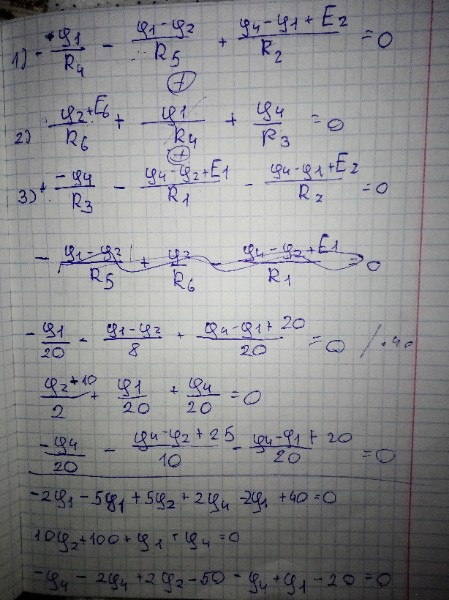 1) - φ1/R4 - (φ1-φ2)/R5 + (φ4-φ1+E2)/R2 = 0
2) (φ2+E6)/R6 + φ1/R4 + φ4/R3 = 0
3) -φ4/R3 - (φ4-φ2+E1)/R1 - (φ4-φ1+E2)/R2 = 0
- (φ1-φ2)/R5 + φ2/R6 - (φ4-φ2+E1)/R1 = 0
- φ1/20 - (φ1-φ2)/8 + (φ4-φ1+20)/20 = 0 / ·40
(φ2+10)/2 + φ1/20 + φ4/20 = 0
-φ4/20 - (φ4-φ2+25)/10 - (φ4-φ1+20)/20 = 0
-2φ1-5φ1+5φ2+2φ4-2φ1+40=0
10φ2+100+φ1+φ4=0
-φ4-2φ4+2φ2-50-φ4+φ1-20=0